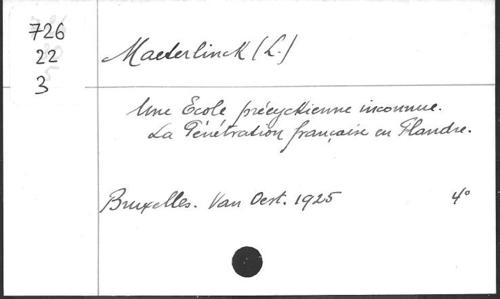 726
22
3
Maeterlinck (L.)
Une Ecole préeyckienne inconnue.
La Pénétration française en Flandre.
Bruxelles. Van Oest. 1925 4°